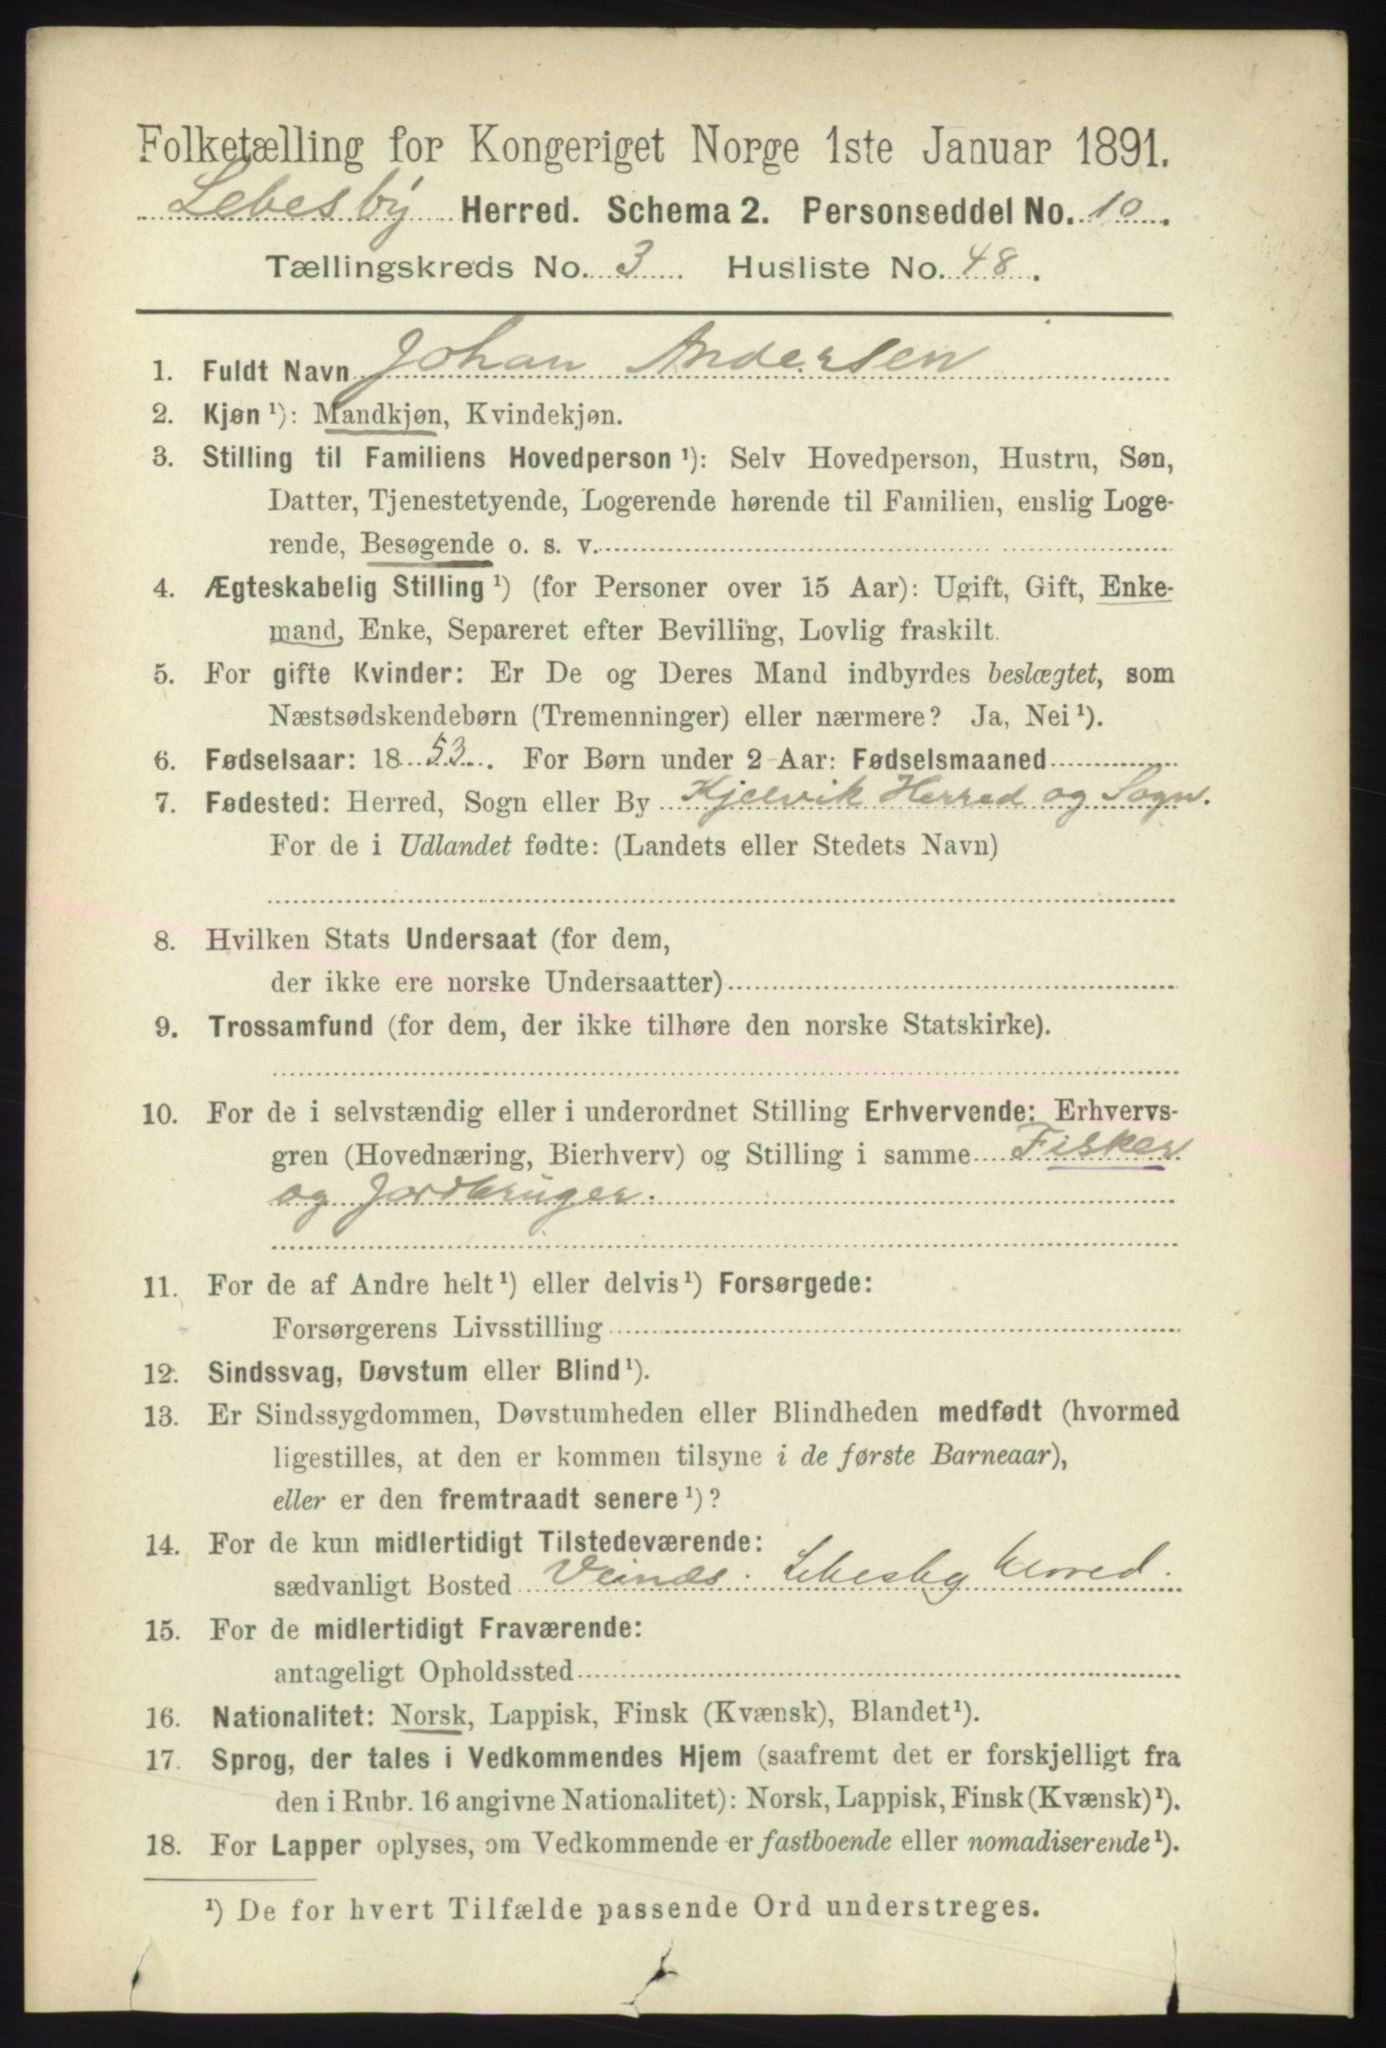 Folketælling for Kongeriget Norge 1ste Januar 1891.
Lebesby Herred. Schema 2. Personseddel No. 10.
Tællingskreds No. 3. Husliste No. 48.
1. Fuldt Navn Johan Andersen
2. Kjøn ¹): Mandkjøn, Kvindekjøn.
3. Stilling til Familiens Hovedperson ¹): Selv Hovedperson, Hustru, Søn,
Datter, Tjenestetyende, Logerende hørende til Familien, enslig Loge-
rende, Besøgende o. s. v.
4. Ægteskabelig Stilling ¹) (for Personer over 15 Aar): Ugift, Gift, Enke-
mand, Enke, Separeret efter Bevilling, Lovlig fraskilt.
5. For gifte Kvinder: Er De og Deres Mand indbyrdes beslægtet, som
Næstsødskendebørn (Tremenninger) eller nærmere? Ja, Nei ¹).
6. Fødselsaar: 1853. For Børn under 2 Aar: Fødselsmaaned
7. Fødested: Herred, Sogn eller By Kjelvik Herred og Sogn.
For de i Udlandet fødte: (Landets eller Stedets Navn)
8. Hvilken Stats Undersaat (for dem,
der ikke ere norske Undersaatter)
9. Trossamfund (for dem, der ikke tilhøre den norske Statskirke).
10. For de i selvstændig eller i underordnet Stilling Erhvervende: Erhvervs-
gren (Hovednæring, Bierhverv) og Stilling i samme Fisker
og Jordbruger.
11. For de af Andre helt ¹) eller delvis ¹) Forsørgede:
Forsørgerens Livsstilling
12. Sindssvag, Døvstum eller Blind ¹).
13. Er Sindssygdommen, Døvstumheden eller Blindheden medfødt (hvormed
ligestilles, at den er kommen tilsyne i de første Barneaar),
eller er den fremtraadt senere ¹)?
14. For de kun midlertidigt Tilstedeværende:
sædvanligt Bosted Veinæs. Lebesby Herred.
15. For de midlertidigt Fraværende:
antageligt Opholdssted
16. Nationalitet: Norsk, Lappisk, Finsk (Kvænsk), Blandet ¹).
17. Sprog, der tales i Vedkommendes Hjem (saafremt det er forskjelligt fra
den i Rubr. 16 angivne Nationalitet): Norsk, Lappisk, Finsk (Kvænsk) ¹).
18. For Lapper oplyses, om Vedkommende er fastboende eller nomadiserende ¹).
¹) De for hvert Tilfælde passende Ord understreges.